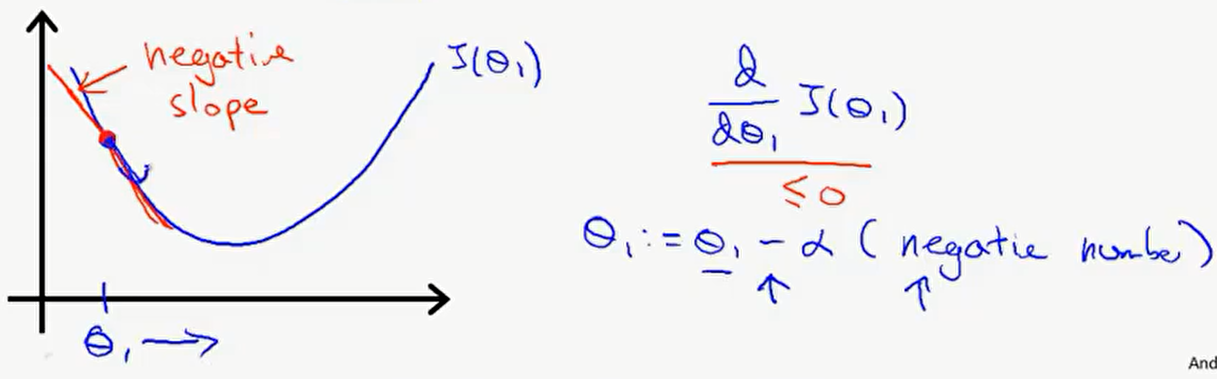 negative
slope
J(θ₁)
d
dθ₁ J(θ₁)
≤ 0
θ₁ := θ₁ - α (negatie number)
θ₁
And